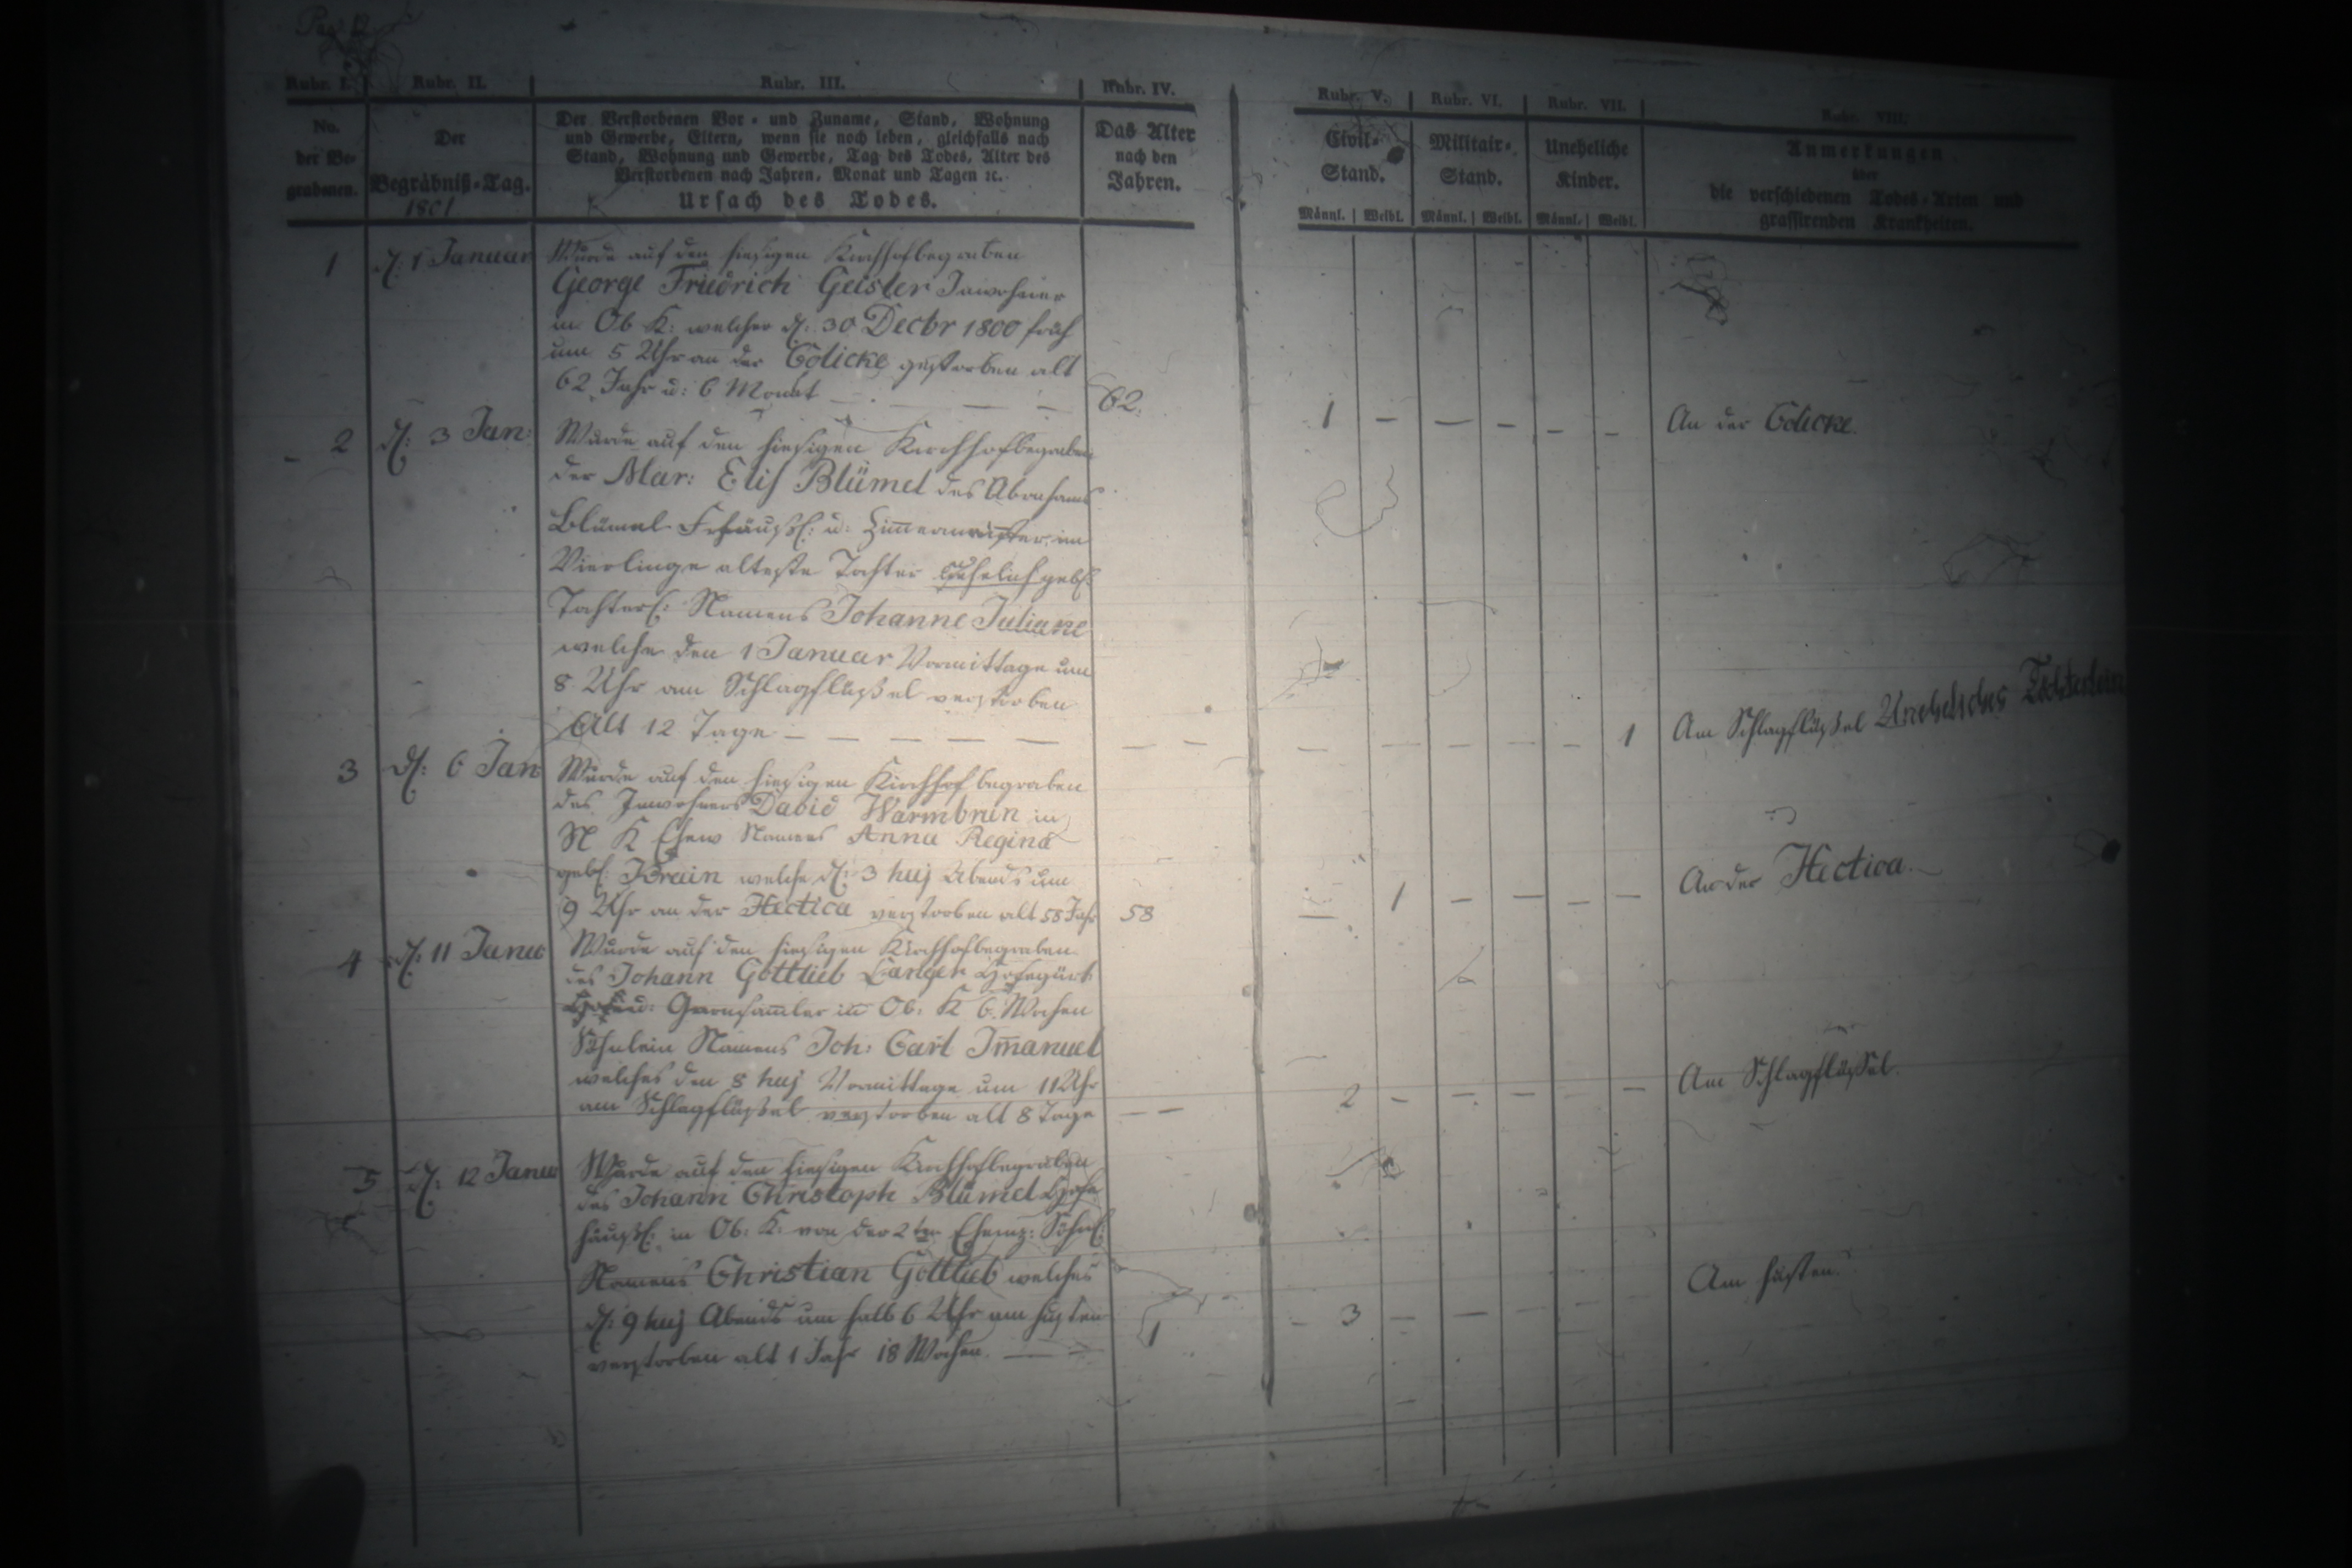 Pag 12
Rubr. I.
Rubr. II.
Rubr. III.
Rubr. IV.
Rubr. V.
Rubr. VI.
Rubr. VII.
Rubr. VIII.
No. der Begrabenen.
Der Begräbniß-Tag.
1801
Der Verstorbenen Vor- und Zuname, Stand, Wohnung
und Gewerbe, Eltern, wenn sie noch leben, gleichfalls nach
Stand, Wohnung und Gewerbe, Tag des Todes, Alter des
Verstorbenen nach Jahren, Monat und Tagen ꝛc.
Ursach des Todes.
Das Alter
nach den
Jahren.
Civil-
Stand.
Männl. Weibl.
Militair-
Stand.
Männl. Weibl.
Uneheliche
Kinder.
Männl. Weibl.
Anmerkungen
über
die verschiedenen Todes-Arten und
grassirenden Krankheiten.
1 d: 1 Januar Wurde auf den hiesigen Kirchhof begraben
George Friedrich Geisler Inwohner
in Ob K: welcher d: 30 Decbr 1800 früh
um 5 Uhr an der Colicke gestorben alt
62 Jahr u: 6 Monat — — — 62. 1 — — — — — An der Colicke.
2 d: 3 Jan: Wurde auf den hiesigen Kirchhof begraben
der Mar: Elis Blümel des Abrahams
Blümel Frhäußl: u: Zimmermeister im
Vierlinge alteste Tochter unehelich geb:
Töchterl: Namens Johanne Juliane
welche den 1 Januar Vormittage um
8 Uhr am Schlagflüßel verstorben
Alt 12 Tage — — — — — — — — — — — — 1 Am Schlagflüßel Unehelsches Töchterlein
3 d: 6 Jan Wurde auf den hiesigen Kirchhof begraben
des Inwohners David Warmbrun in
N K Ehew Namens Anna Regina
geb: Brein welche d: 3 huj Abends um
9 Uhr an der Hectica verstorben alt 58 Jahr 58 — 1 — — — — An der Hectica.
4 d: 11 Janu Wurde auf den hiesigen Kirchhof begraben
des Johann Gottlieb Langer Hofegärt
u: Garnsamler in Ob: K 6. Wochen
Söhnlein Namens Joh: Carl Im̄anuel
welches den 8 huj Vormittage um 11 Uhr
am Schlagflüßel verstorben alt 8 Tage — — 2 — — — — — Am Schlagflüßel.
5 d: 12 Janu Wurde auf den hiesigen Kirchhof begraben
des Johann Christoph Blümel Hofe
häußl: in Ob: K: von der 2ten Söhnl:
Namens Christian Gottlieb welches
d: 9 huj Abends um halb 6 Uhr am husten
verstorben alt 1 Jahr 18 Wochen. — — 1 3 — — — — — Am husten.